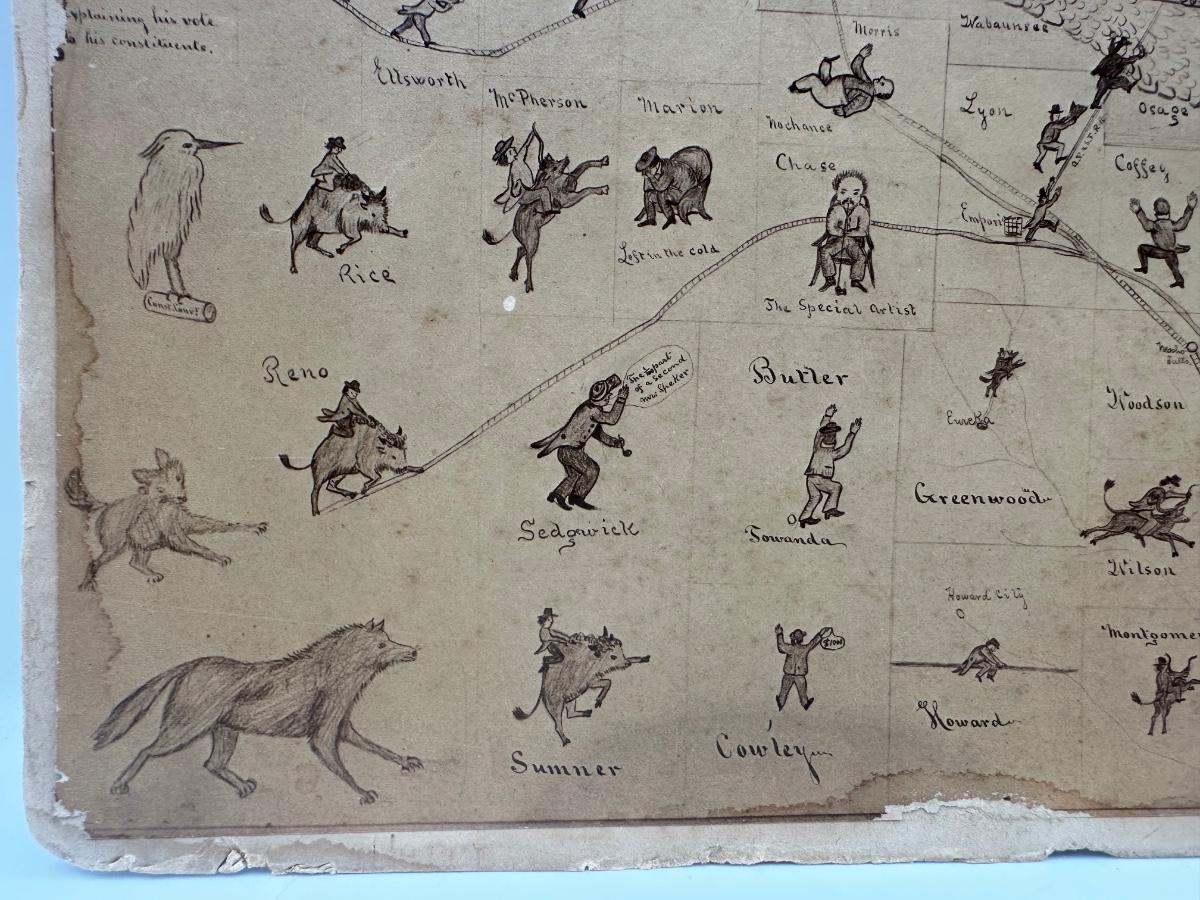 explaining his vote
to his constituents.
Ellsworth
McPherson
Marion
Morris
Nochance
Wabaunsee
Lyon
Osage
Chase
Coffey
Emporia
Rice
Left in the cold
The Special Artist
Const. Conv.
Reno
of a second
Mr. Speker
Butler
Eureka
Neosho
Falls
Woodson
Greenwood
Sedgwick
Towanda
Wilson
Howard City
Montgomer
Howard
Cowley
Sumner